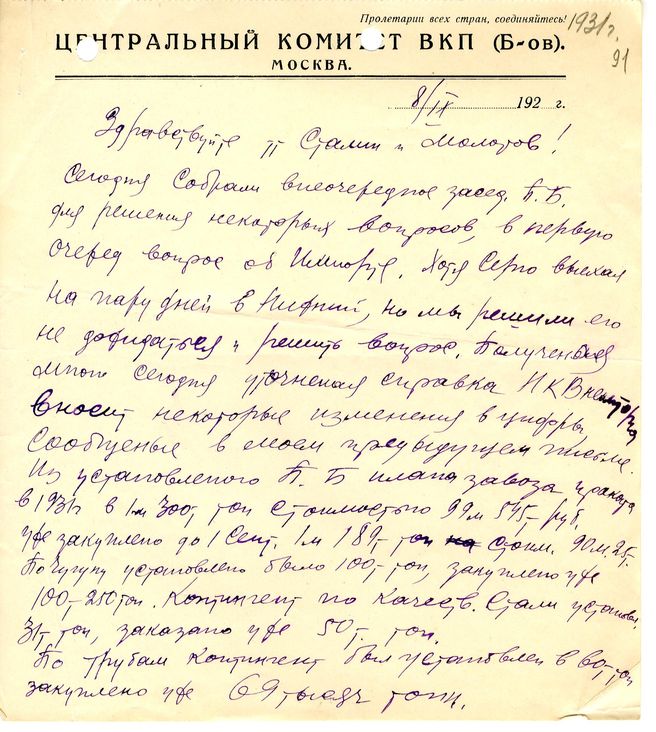 Пролетарии всех стран, соединяйтесь!
1931г.
91
ЦЕНТРАЛЬНЫЙ КОМИТЕТ ВКП (Б-ов).
МОСКВА.
8/IX 192 г.
Здравствуйте тт Сталин и Молотов!
Сегодня собрали внеочередное засед. П.Б.
для решения некоторых вопросов, в первую
очеред вопрос об Импорте. Хотя Серго выехал
на пару дней в Нижний, но мы решили его
не дожидаться и решить вопрос. Полученная
мною сегодня уточненая справка НКВнешторга
вносит некоторые изменения в цифры
сообщеные в моем предыдущем письме.
Из установленого П.Б плана завоза проката
в 1931г в 1м 300т тон стоимостью 99м 545т руб.
уже закуплено до 1 Сент. 1м 189т тон стоим. 90м.25т.
По чугуну установлено было 100т тон, закуплено уже
100т-250тон. Контингент по качеств. Стали установл.
31т тон, заказано уже 50т тон.
По трубам контингент был установлен в тон
закуплено уже 69 тысяч тонн.